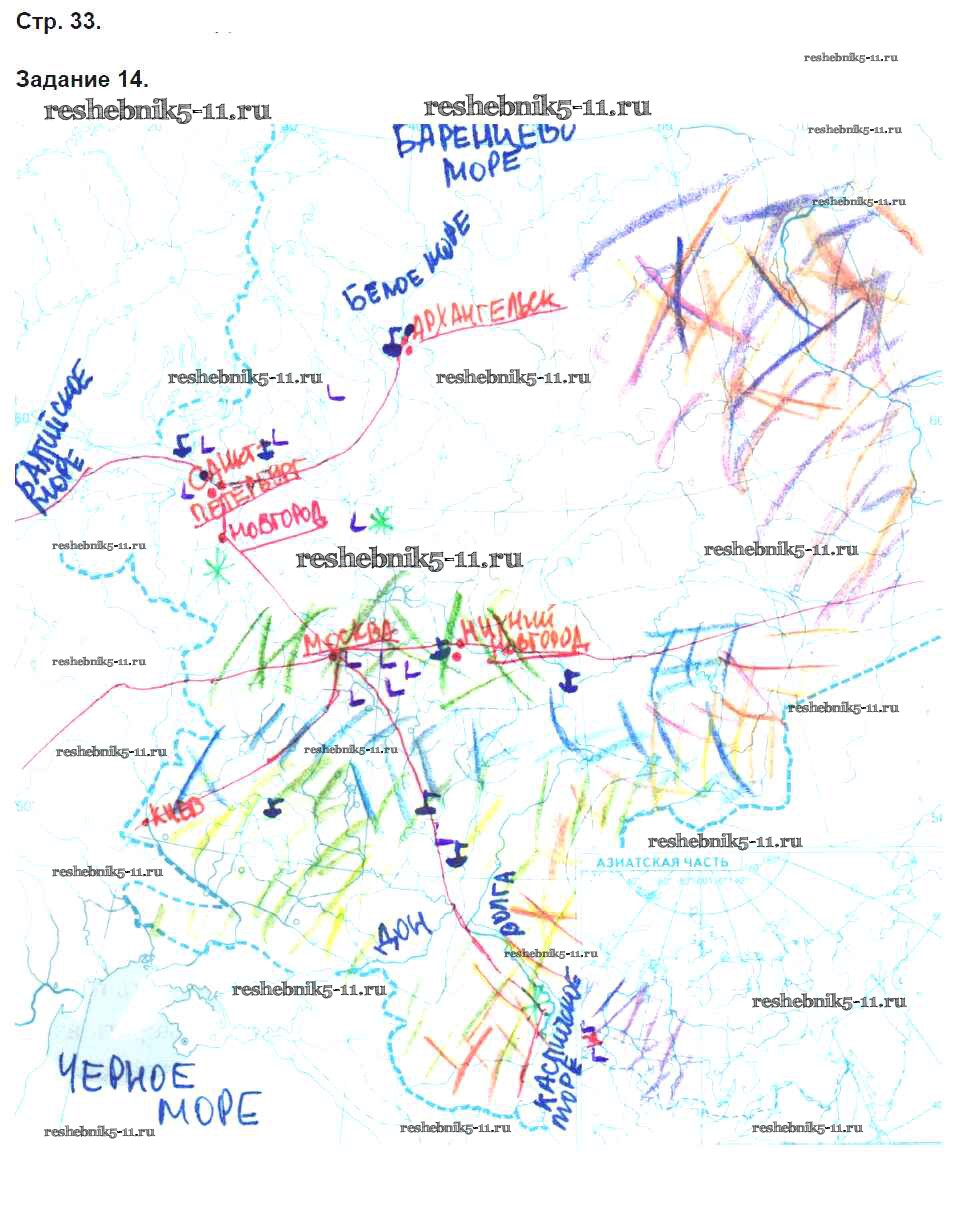 Стр. 33.
reshebnik5-11.ru
Задание 14.
reshebnik5-11.ru
reshebnik5-11.ru
reshebnik5-11.ru
БАРЕНЦЕВО
МОРЕ
reshebnik5-11.ru
БЕЛОЕ МОРЕ
АРХАНГЕЛЬСК
reshebnik5-11.ru
reshebnik5-11.ru
БАЛТИЙСКОЕ
МОРЕ
САНКТ-
ПЕТЕРБУРГ
НОВГОРОД
reshebnik5-11.ru
reshebnik5-11.ru
reshebnik5-11.ru
МОСКВА
НИЖНИЙ
НОВГОРОД
reshebnik5-11.ru
reshebnik5-11.ru
reshebnik5-11.ru
reshebnik5-11.ru
КИЕВ
reshebnik5-11.ru
АЗИАТСКАЯ ЧАСТЬ
reshebnik5-11.ru
ДОН
ВОЛГА
reshebnik5-11.ru
reshebnik5-11.ru
reshebnik5-11.ru
КАСПИЙСКОЕ
МОРЕ
ЧЕРНОЕ
МОРЕ
reshebnik5-11.ru
reshebnik5-11.ru
reshebnik5-11.ru